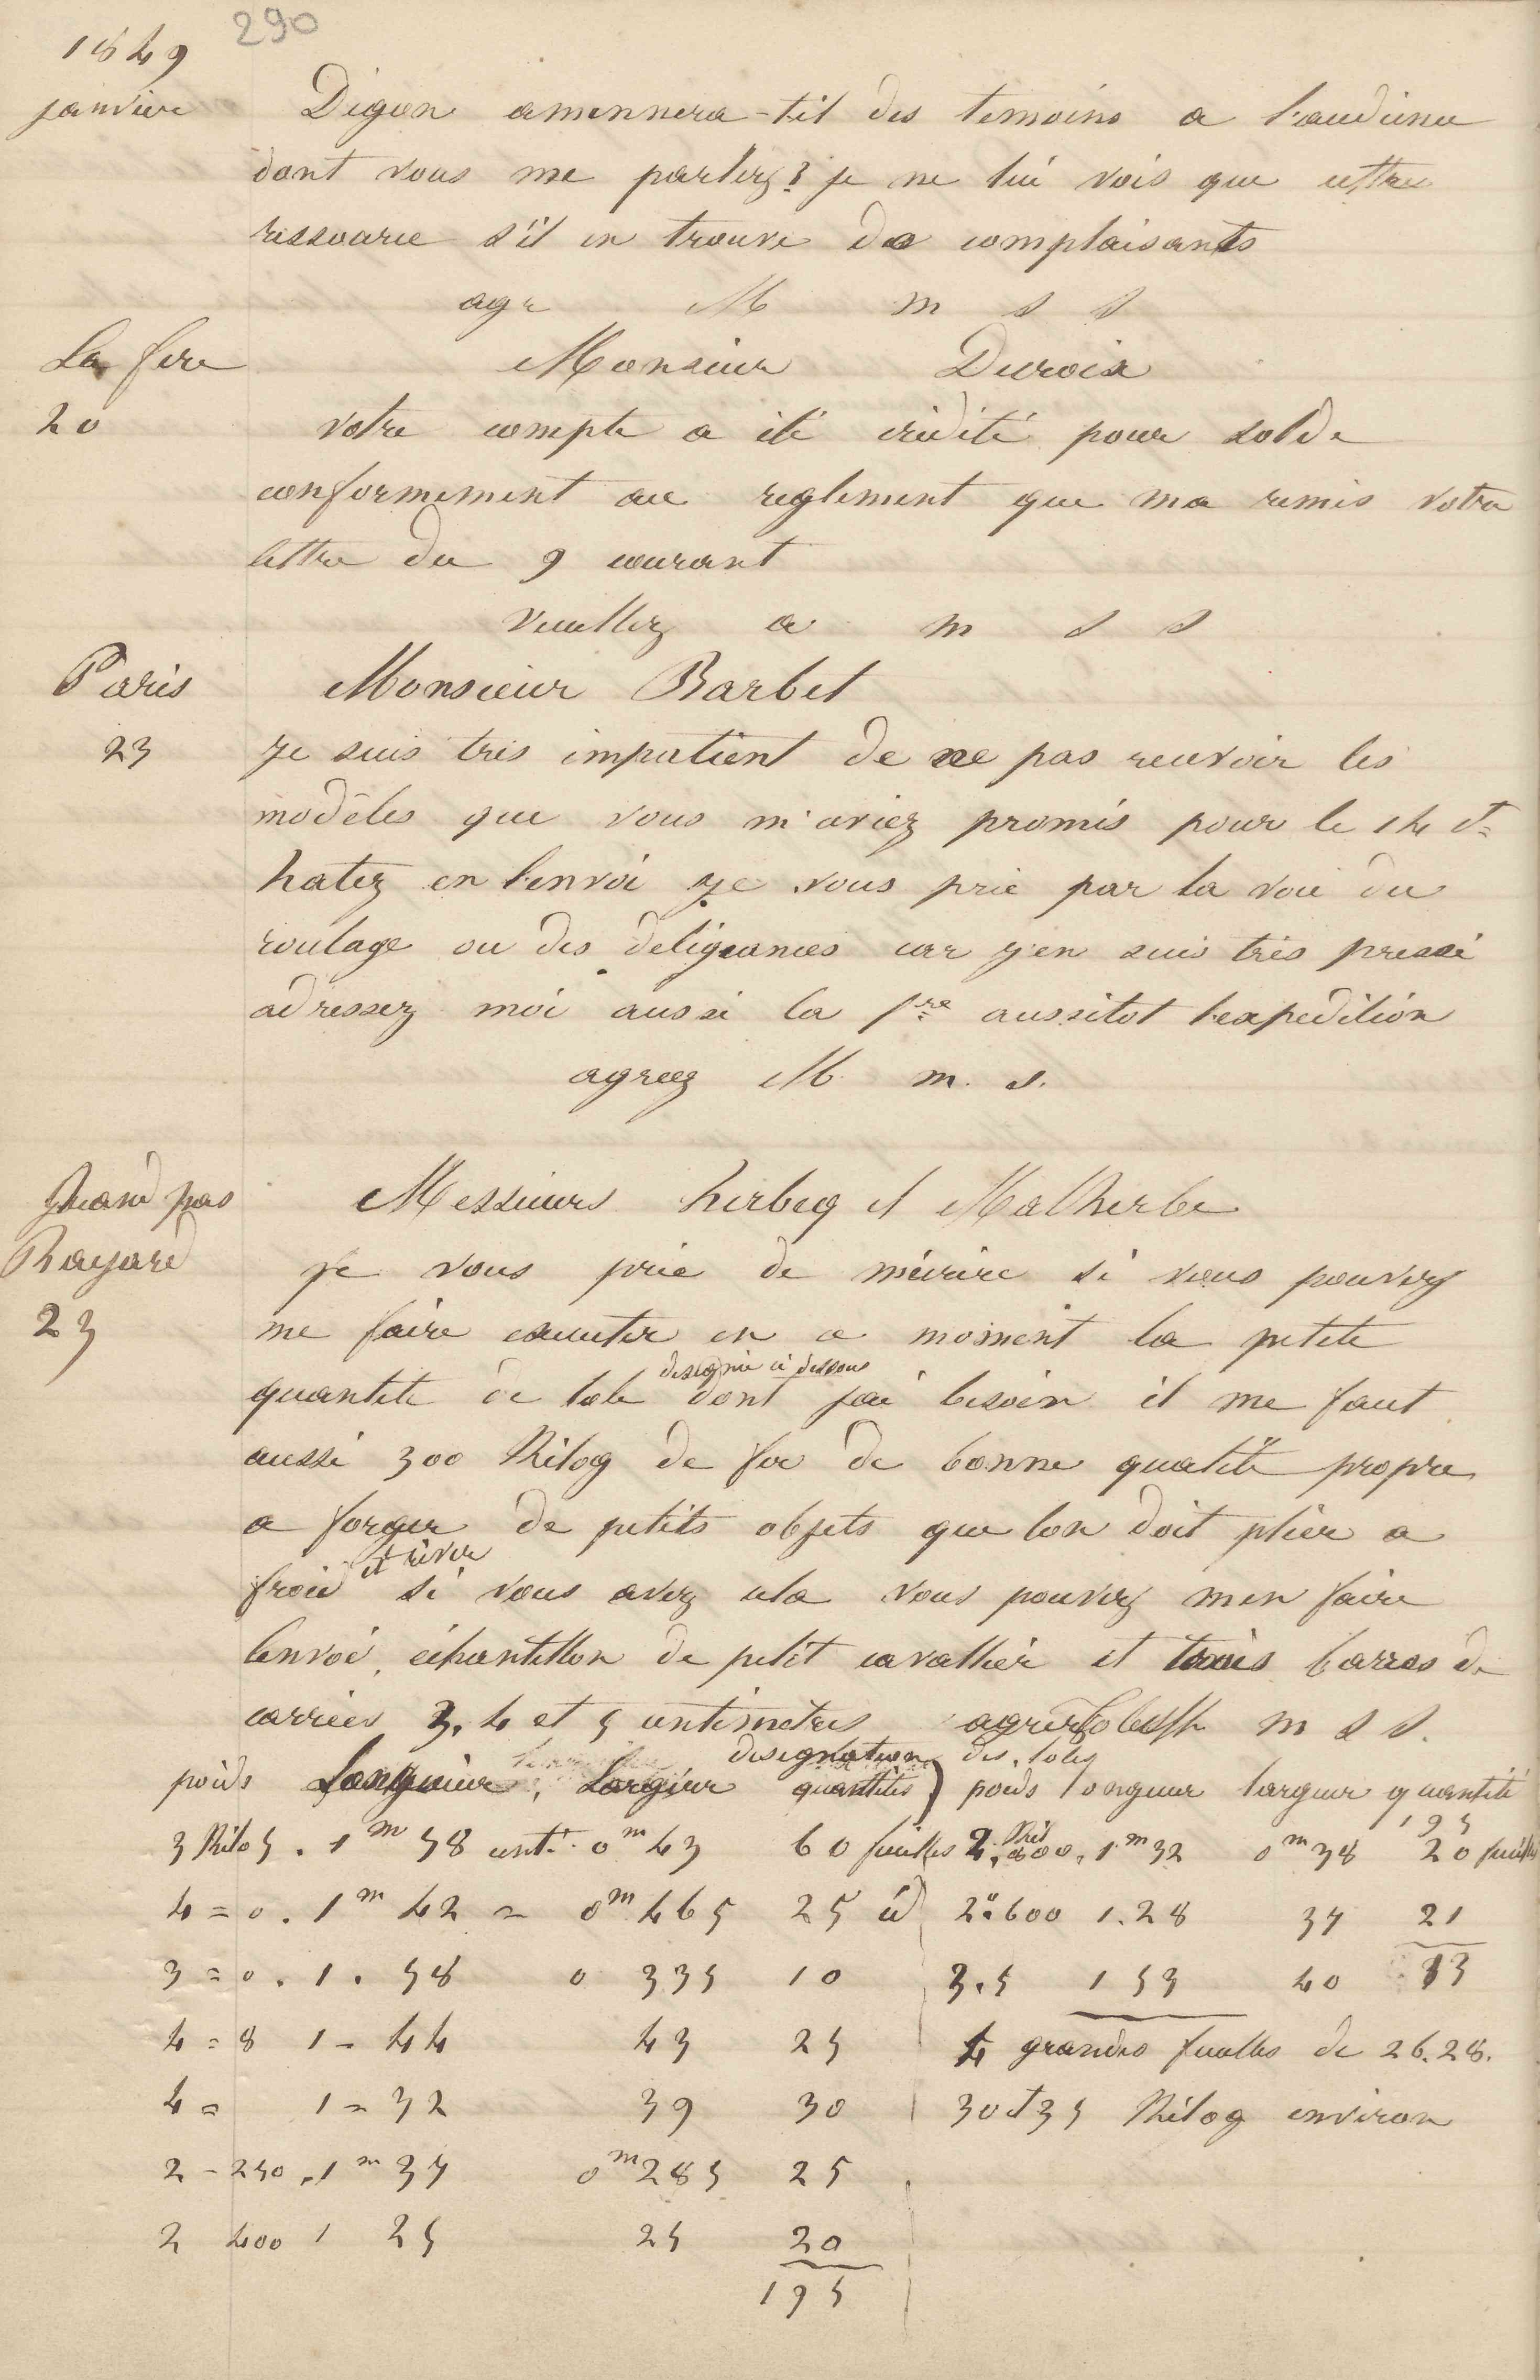 290
1849
janvier
Digon amennera-til des temoins a l'audience
dont vous me parlez? je ne lui vois que cette
ressource s'il en trouve de complaisants
agr M m s s
La fere
Monsieur Duroix
20
votre compte a été crédité pour solde
conformement au reglement que ma remis votre
lettre du 9 courant
veuillez a m s s
Paris
Monsieur Barbet
23
je suis tres impatient de ne pas recevoir les
modèles que vous m'aviez promis pour le 14 Ct
hatez en l'envoi je vous prie par la voie du
roulage ou des deligeances car j'en suis très pressé
adressez moi aussi la fre aussitot l'expedition
agreez M m. s.
Messieurs herbeq et Malherbe
23
je vous prie de mécrire si vous pouvez
me faire executer en ce moment la petite
quantite de tole designée ci dessous dont jai besoin il me faut
aussi 300 Kilog de fer de bonne qualité propre
a forger de petits objets que lon doit plier a
froid et river si vous avez cela vous pouvez men faire
lenvoi, échantillon de petit cavallier et trois barres de
carrées 3. 4 et 5 centimetres m s s.
designation des toles
poids Longueur, Largeur quantités) poids longueur largeur quantité
195
3 Kilo 5. 1m 58 cent. 0m 43 60 feuilles 2, Kil 600, 1m 32 0m 38 20 feuilles
4 = 0. 1m 42 = 0m 465 25 id 2" 600 1.28 37 21
3 = 0. 1. 58 0 335 10 3.5 153 40 13
4 = 8 1 - 44 43 25 4 grandes feuilles de 26.28.
4 = 1 = 32 39 30 30 et 35 Kilog environ
2 - 250, 1m 37 0m 285 25
2 400 1 25 25 20
195